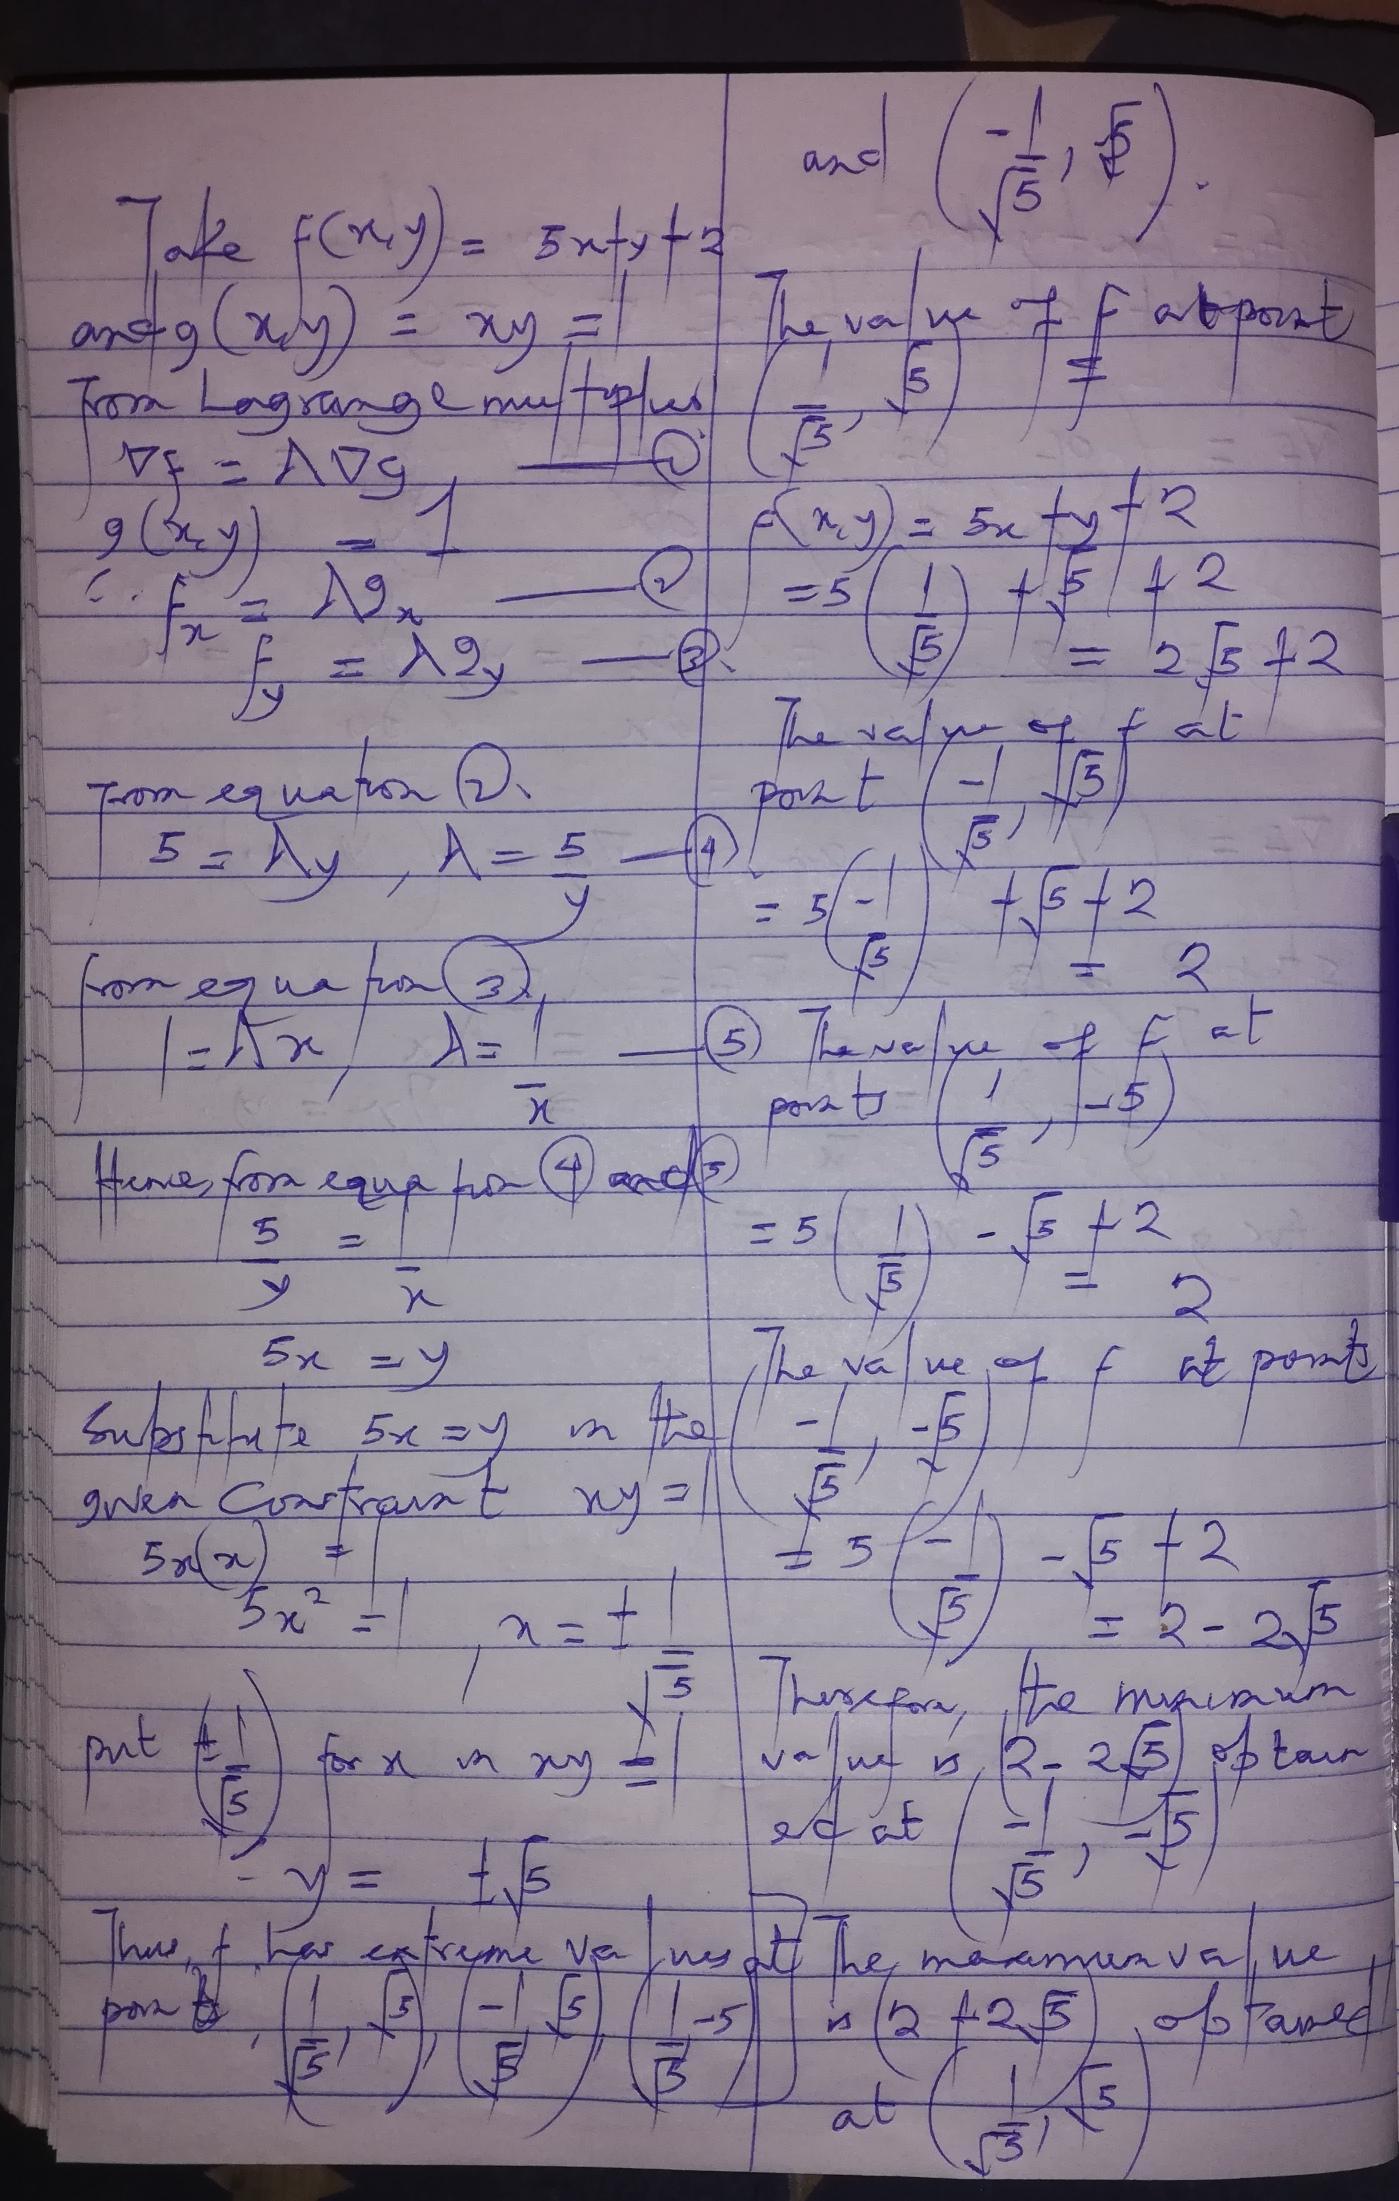 Take f(x,y) = 5x+y+2
and g(x,y) = xy = 1
From Lagrange multiplier
∇f = λ∇g — ①
g(x,y) = 1
∴ fx = λgx — ②
fy = λgy — ③
From equation ②
5 = λy , λ = 5/y — ④
from equation ③
1 = λx , λ = 1/x — ⑤
Hence, from equation ④ and ⑤
5/y = 1/x
5x = y
Substitute 5x = y in the
given constraint xy = 1
5x(x) = 1
5x² = 1 , x = ± 1/√5
put (± 1/√5) for x in xy = 1
y = ±√5
Thus, f has extreme values at
points, (1/√5, √5), (-1/√5, √5), (1/√5, -5)
and (-1/√5, √5).
The value of f at point
(1/√5, √5) =
f(x,y) = 5x+y+2
= 5(1/√5) + √5 + 2
= 2√5 + 2
The value of f at
point (-1/√5, √5)
= 5(-1/√5) + √5 + 2
= 2
The value of f at
points (1/√5, -5)
= 5(1/√5) - √5 + 2
= 2
The value of f at points
(-1/√5, -√5)
= 5(-1/√5) - √5 + 2
= 2 - 2√5
Therefore, the minimum
value is (2 - 2√5) obtain
ed at (-1/√5, -√5)
The maximum value
is (2 + 2√5) obtained
at (1/√5, √5)